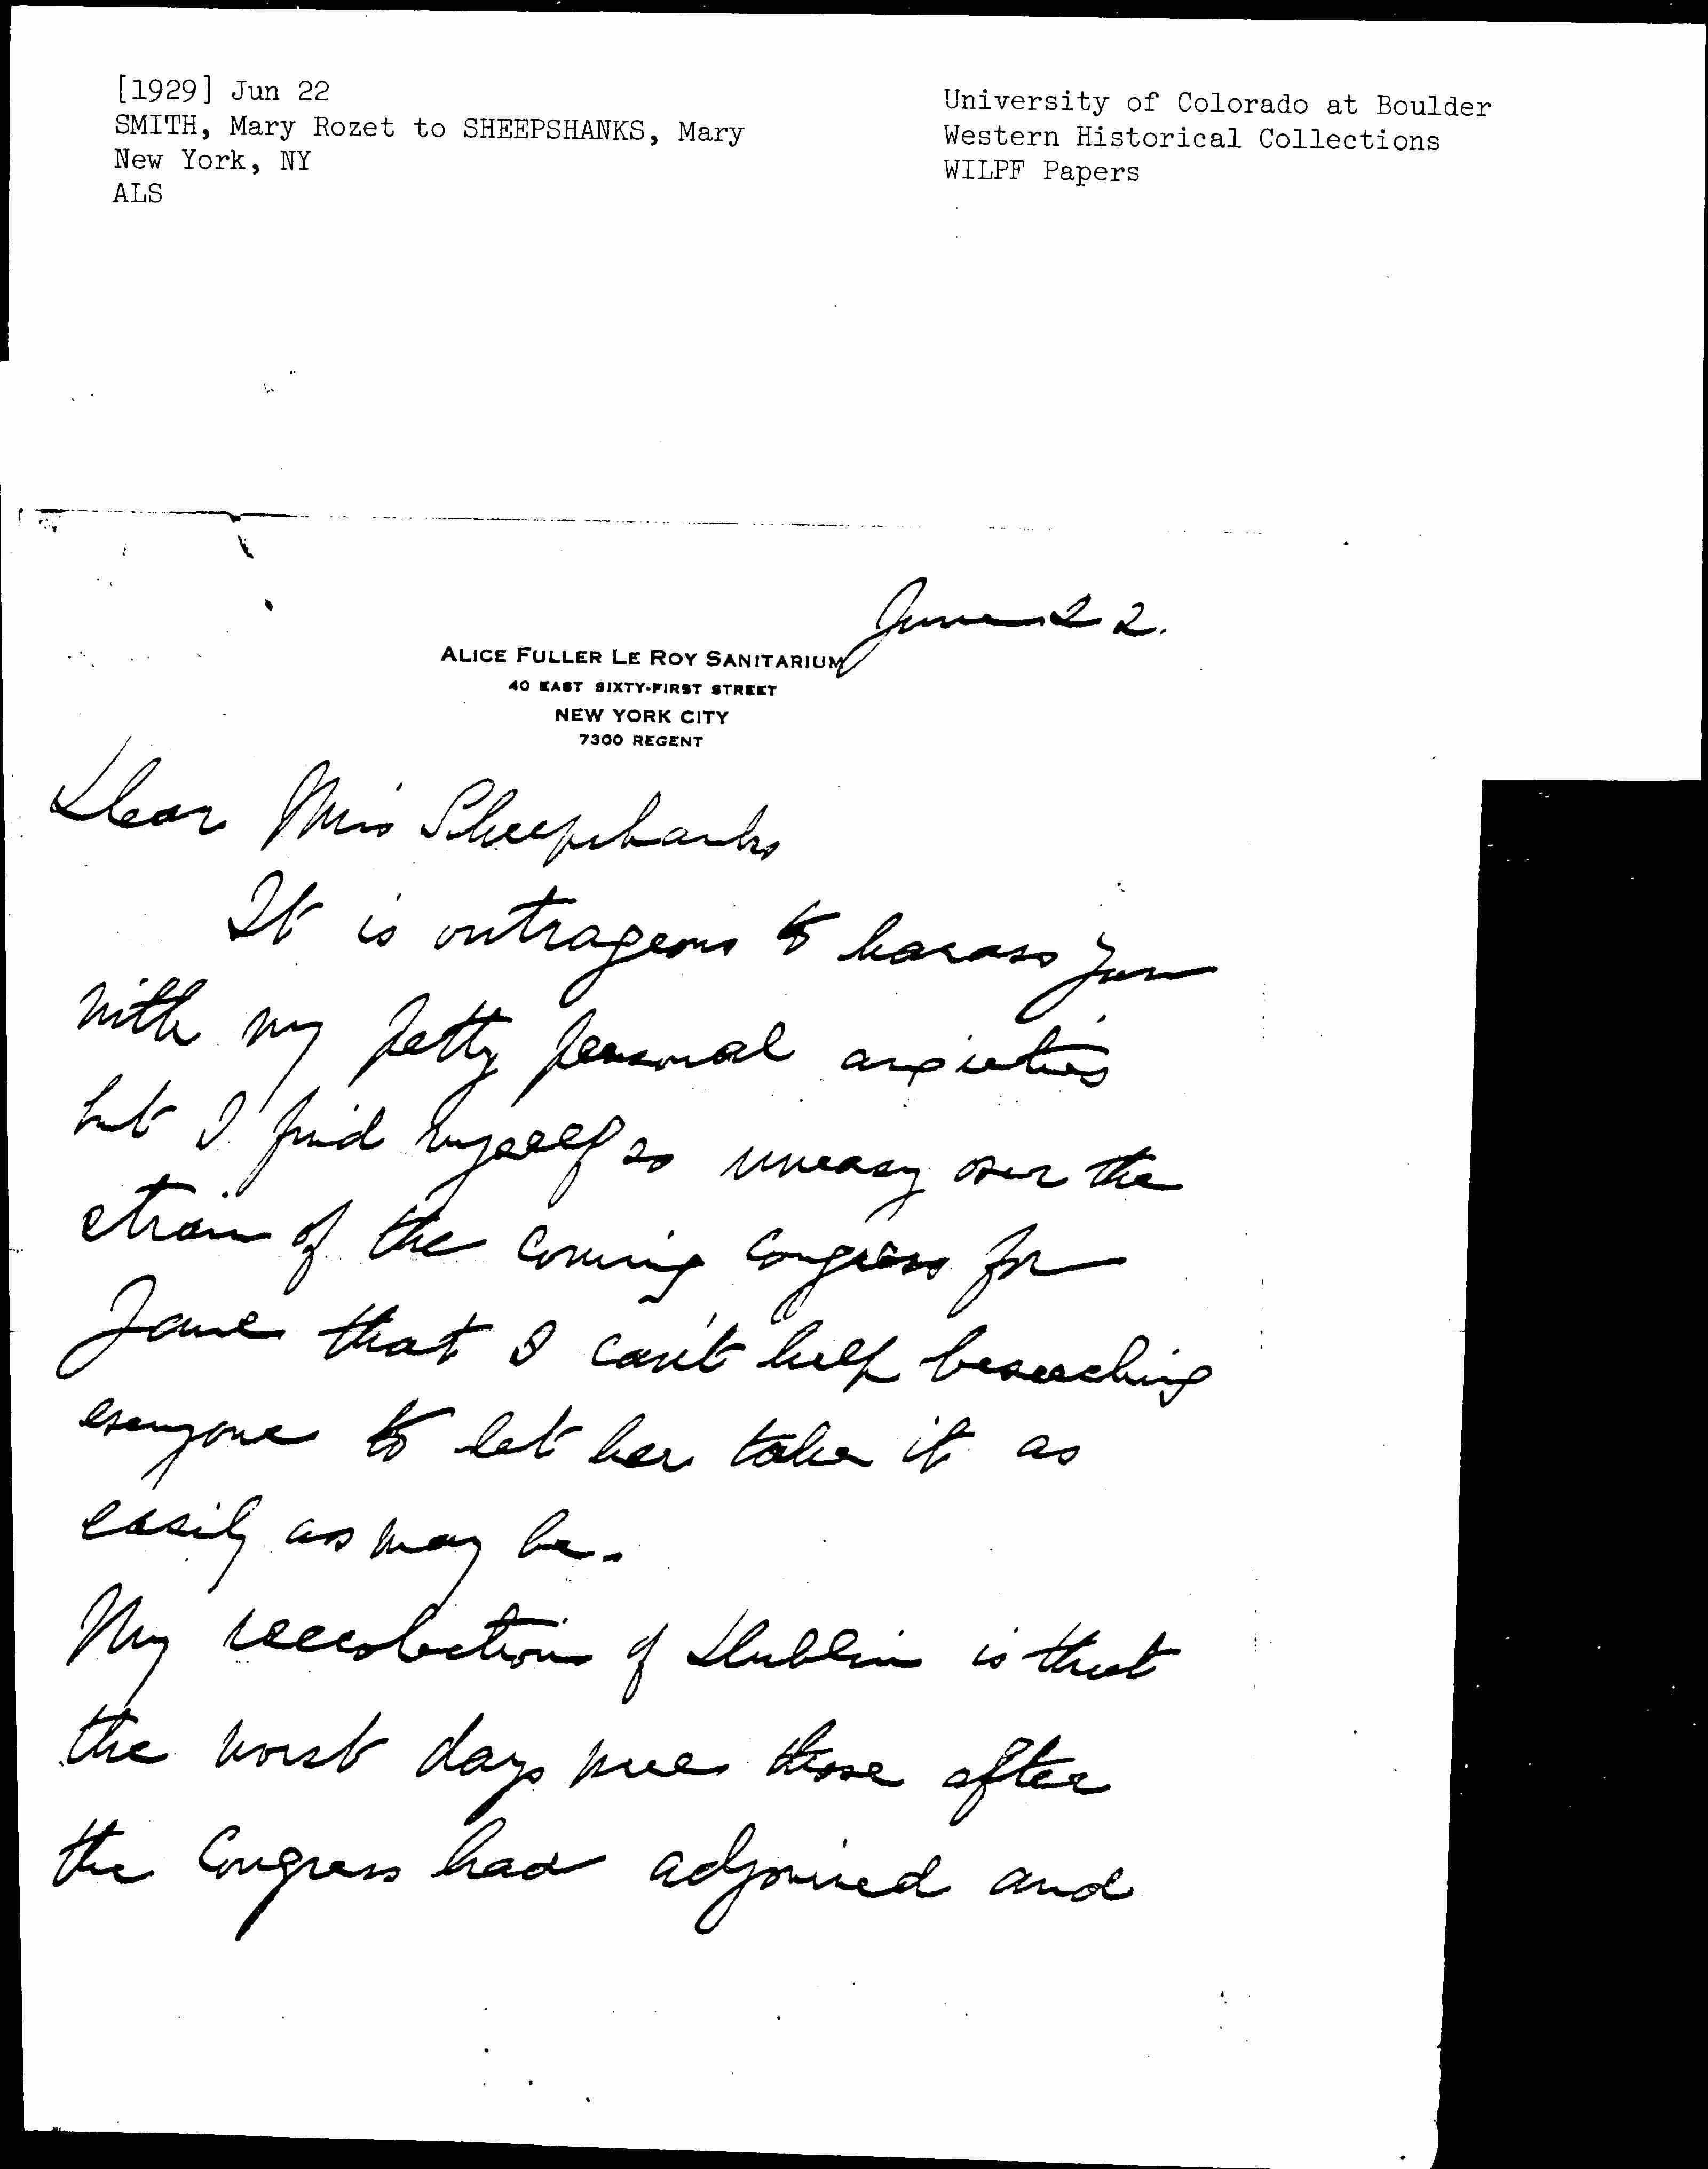 [1929] Jun 22
SMITH, Mary Rozet to SHEEPSHANKS, Mary
New York, NY
ALS
University of Colorado at Boulder
Western Historical Collections
WILPF Papers
June 22.
ALICE FULLER LE ROY SANITARIUM
40 EAST SIXTY-FIRST STREET
NEW YORK CITY
7300 REGENT
Dear Miss Sheepshanks
It is outrageous to harass you
with my petty personal anxieties
but I find myself so uneasy over the
strain of the coming Congress for
Jane that I can't help beseeching
everyone to let her take it as
easily as may be.
My recollection of Dublin is that
the worst days were those after
the Congress had adjourned and